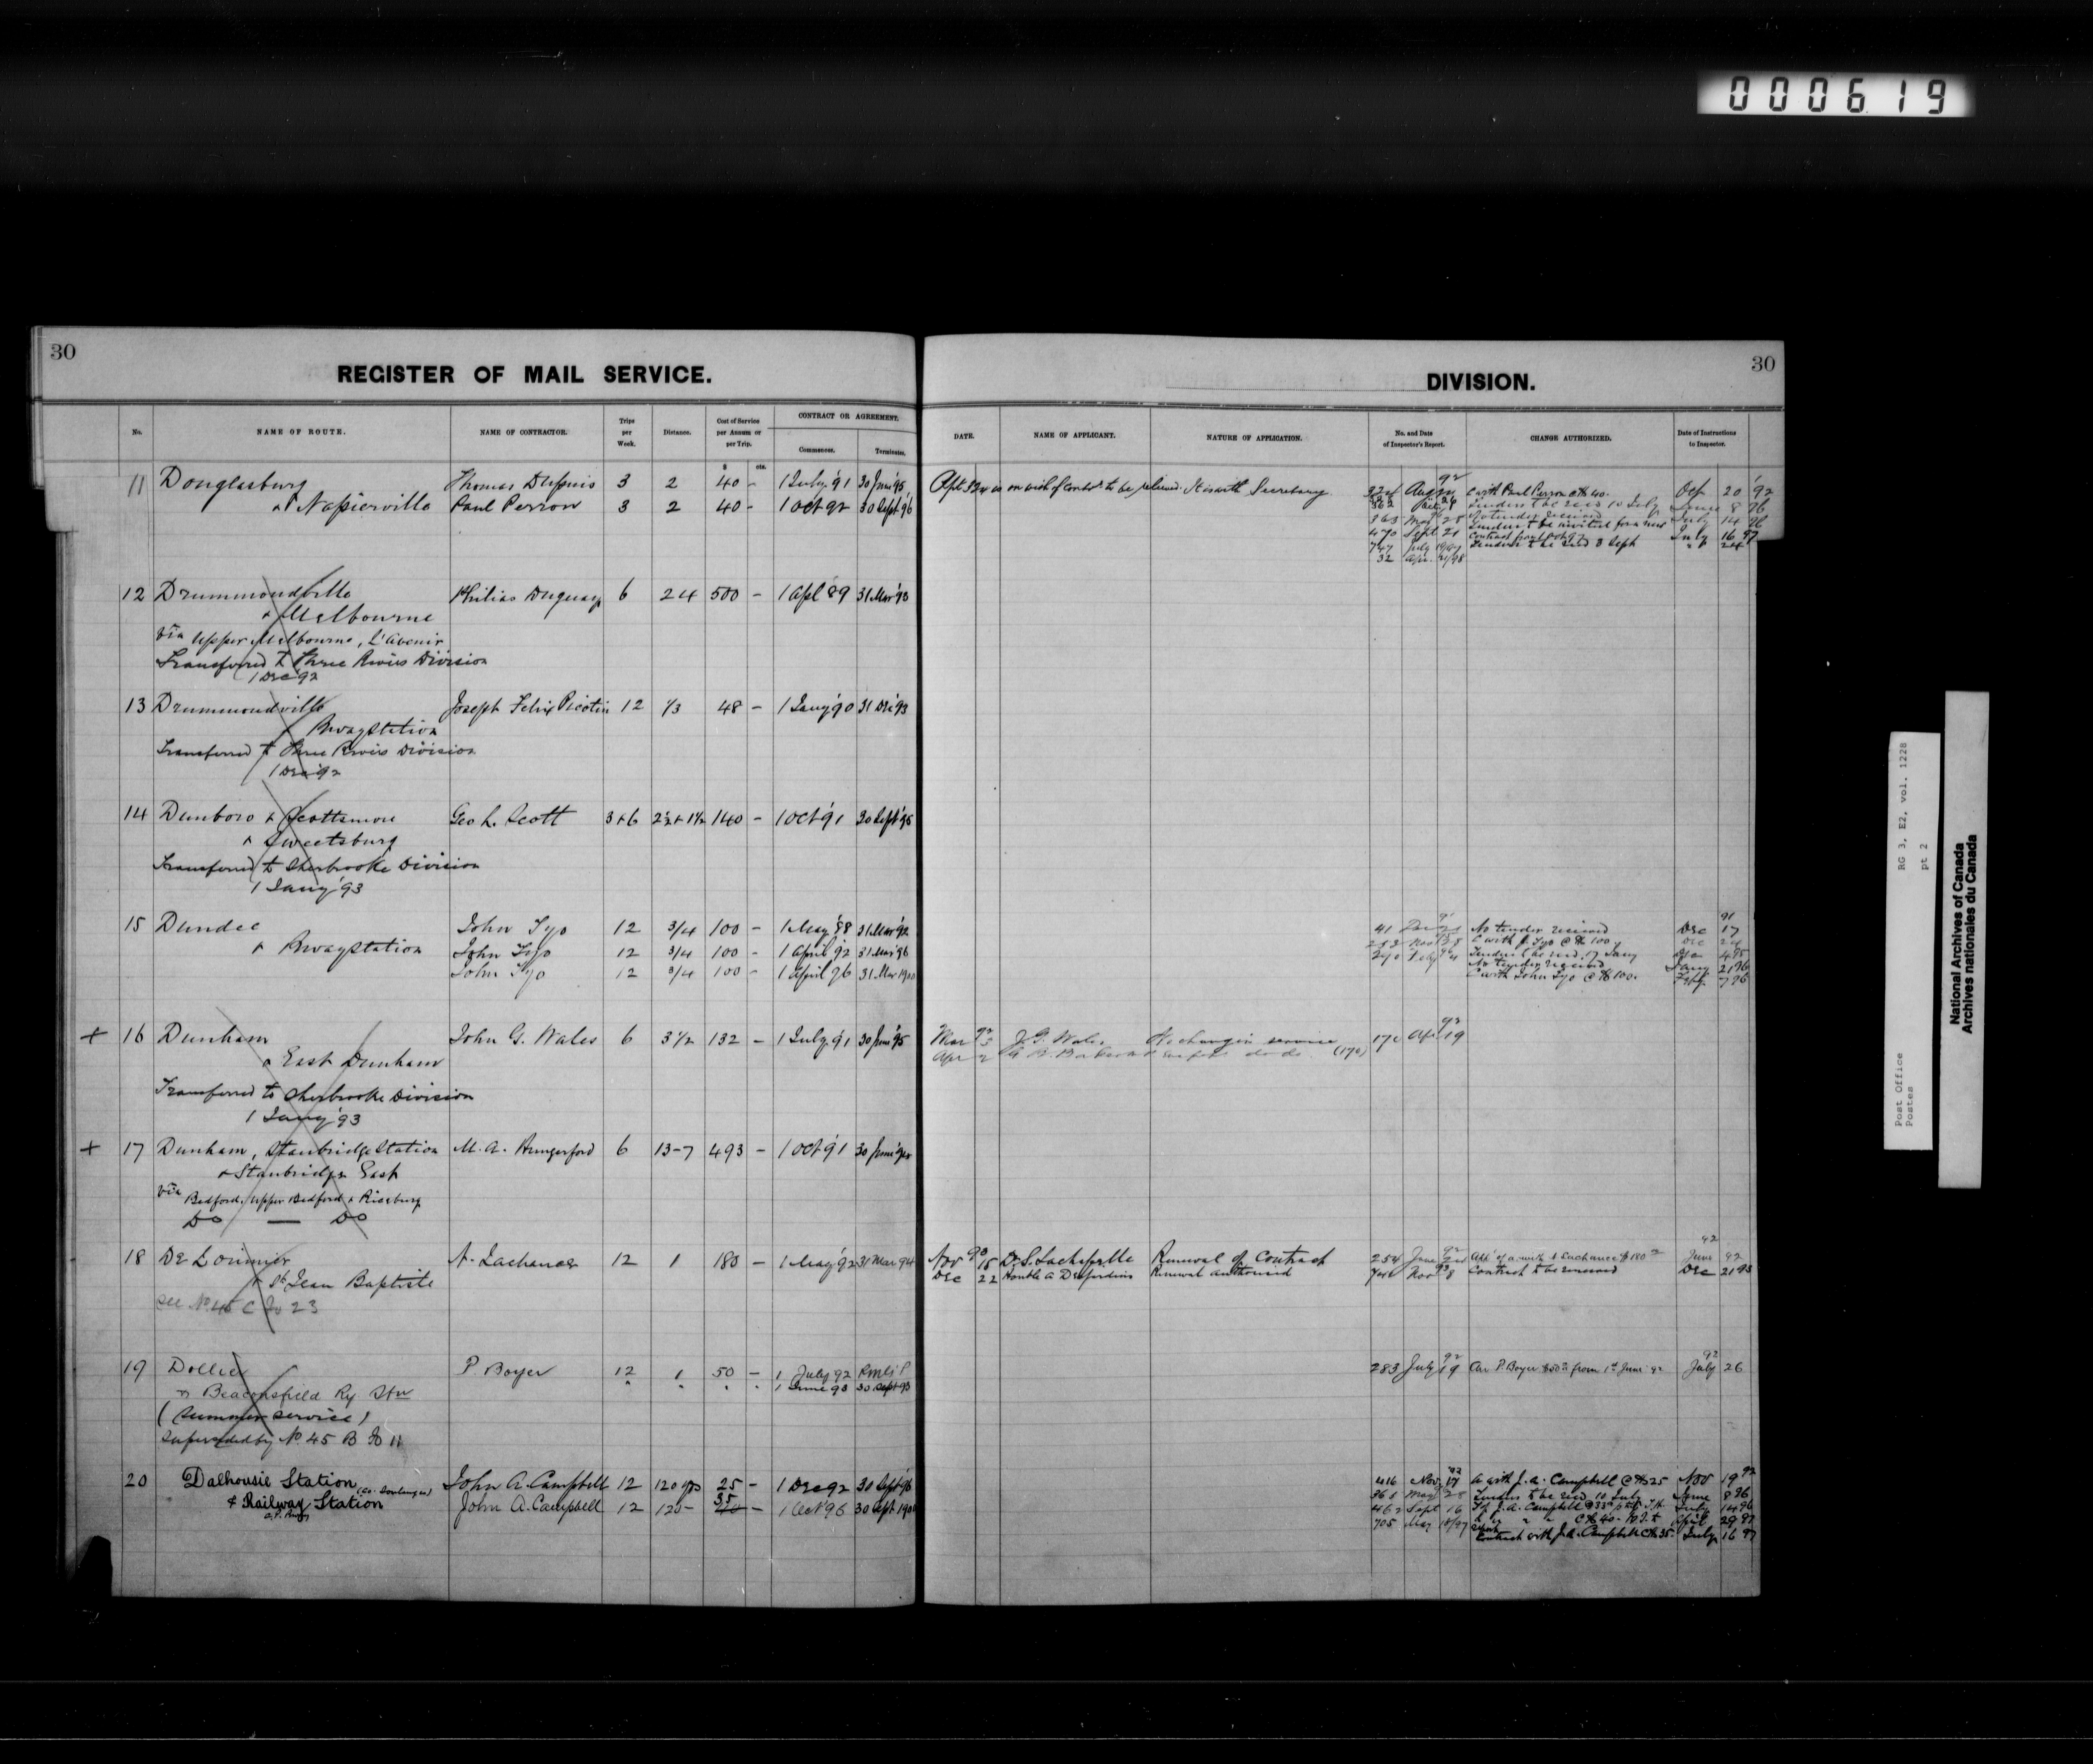 000619
30
REGISTER OF MAIL SERVICE.
No.
NAME OF ROUTE.
NAME OF CONTRACTOR.
Trips per Week.
Distance.
Cost of Service per Annum or per Trip.
$ cts.
CONTRACT OR AGREEMENT.
Commence.
Terminates.
11 Douglasburg Thomas Dupuis 3 2 40 - 1 July '91 30 June '95
& Napierville Paul Perron 3 2 40 - 1 Oct 92 30 Sept '96
12 Drummondville Philias Duguay 6 24 500 - 1 Apl '89 31 Mar '93
& Melbourne
via Upper Melbourne, L'Avenir
Transferred to Three Rivers Division
1 Dec '92
13 Drummondville Joseph Felix Picotin 12 1/3 48 - 1 Jany '90 31 Dec '93
& Rway Station
Transferred to Three Rivers Division
1 Dec '92
14 Dunboro & Scottsmore Geo L. Scott 3 & 6 2½ & 1½ 140 - 1 Oct '91 30 Sept '95
& Sweetsburg
Transferred to Sherbrooke Division
1 Jany '93
15 Dundee John Tyo 12 3/4 100 - 1 May '88 31 Mar '92
& Rway Station John Tyo 12 3/4 100 - 1 April '92 31 Mar '96
John Tyo 12 3/4 100 - 1 April 96 31 Mar 1900
+ 16 Dunham John G. Wales 6 3½ 132 - 1 July '91 30 June '95
& East Dunham
Transferred to Sherbrooke Division
1 Jany '93
+ 17 Dunham, Stanbridge Station M. A. Hungerford 6 13-7 493 - 1 Oct '91 30 June
& Stanbridge East
via Bedford, Upper Bedford & Riceburg
Do — Do
18 De Lorimier A. Lachance 12 1 180 - 1 May '92 31 Mar 94
& St. Jean Baptiste
See No. 45 C Fo 23
19 Dollier P. Boyer 12 1 50 - 1 July 92
& Beaconsfield Ry Stn " " " " 1 June 93 30 Sept 93
(Summer service)
Superseded by No. 45 B Fo 11
20 Dalhousie Station (Co. Soulanges) John A. Campbell 12 120 yds 25 - 1 Dec 92 30 Sept '96
& Railway Station John A. Campbell 12 120 - 35 40 - 1 Oct '96 30 Sept 1900
C. P. Rway
30
DIVISION.
DATE.
NAME OF APPLICANT.
NATURE OF APPLICATION.
No. and Date of Inspector's Report.
CHANGE AUTHORIZED.
Date of Instructions to Inspector.
on wish of contr. to be relieved. It is with Secretary. 324 Aug 92 C with Paul Perron @ $40. Oct 20 '92
Tenders to be recd 10 July June 8 96
363 May 28 No tender received July 14 96
470 Sept 21 Tenders to be invited for a new contract July 16 97
747 July Tenders to be recd 3 Sept
32 Apr. 98
41 Dec 91 No tender received Dec 17 91
Nov C with J. Tyo @ $100 Dec
Feby Tenders to be recd. 7 Jany
No tender received Jany 21 96
C with John Tyo @ $100. Feby 7 96
Mar 92 3 J. G. Wales Re change in service 170 Apl 92 19
Apr 2 do do. (170)
Nov 90 15 Renewal of Contract 254 June 92 A. Lachance $180 June 92
Dec 22 Honble A Desjardins Renewal authorized Nov 93 8 Contract to be renewed Dec 21 93
283 July 92 19 P. Boyer $50 from 1st June 92 July 92 26
416 Nov 92 17 A with J. A. Campbell @ $25 Nov 19 92
May 28 Tenders to be recd 10 July June 8 96
462 Sept 16 J. A. Campbell July 14 96
705 May 18/97 @ $40 - April 29 97
Contract with J. A. Campbell @ $35 July 16 97
Post Office
Postes
RG 3, E2, vol. 1228
pt 2
National Archives of Canada
Archives nationales du Canada